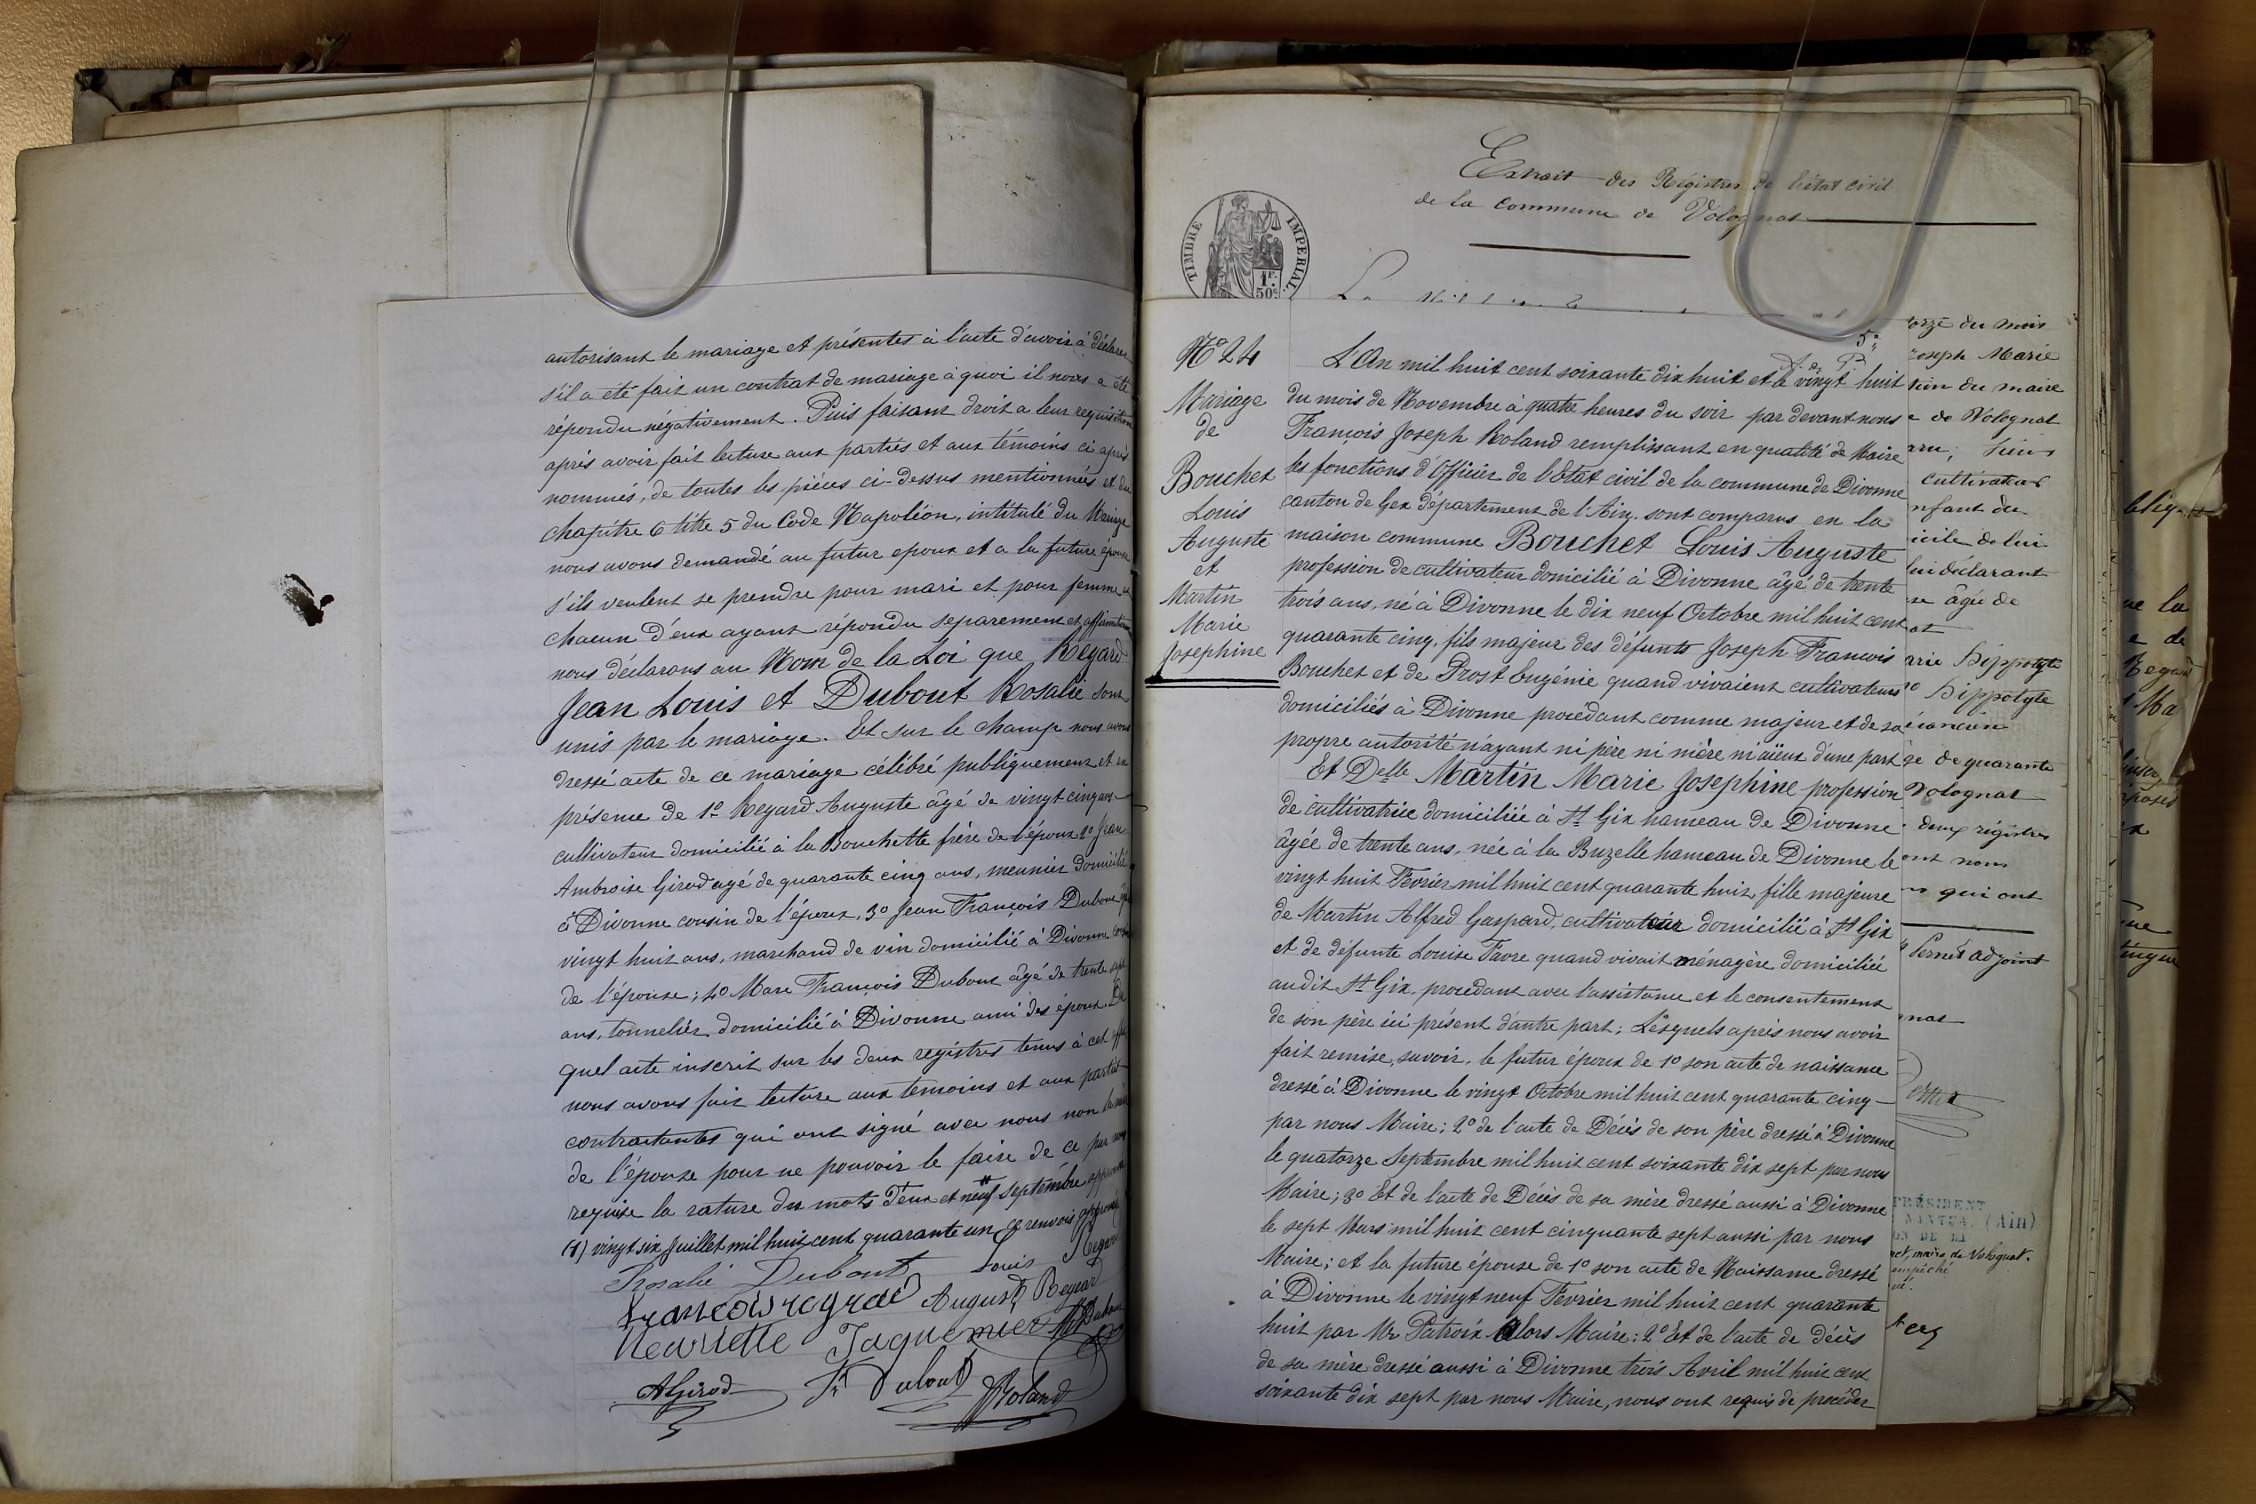 autorisant le mariage et présentes à l'acte d'avoir à déclarer
s'il a été fait un contrat de mariage à quoi il nous a été
répondu négativement. Puis faisant droit a leur requisition
après avoir fait lecture aux parties et aux témoins ci après
nommés, de toutes les pièces ci-dessus mentionnées et du
chapitre 6 titre 5 du Code Napoléon, intitulé du Mariage
nous avons demandé au futur epoux et a la future épouse
s'ils veulent se prendre pour mari et pour femme
chacun d'eux ayant répondu separement et affirmativem
nous déclarons au Nom de la Loi que Regard
Jean Louis et Dubout Rosalie sont
unis par le mariage. Et sur le champ nous avons
dressé acte de ce mariage célébré publiquement et en
présence de 1º Regard Auguste âgé de vingt cinq ans
cultivateur domicilié à la Bouchette frère de l'époux 2º Jean
Ambroise Girod agé de quarante cinq ans, meunier domicilié
à Divonne cousin de l'époux, 3º Jean François Dubout
vingt huit ans, marchand de vin domicilié à Divonne
de l'épouse; 4º Marc François Dubout âgé de trente sept
ans, tonnelier domicilié à Divonne ami des époux. Du
quel acte inscrit sur les deux registres tenus à cet effet
nous avons fait lecture aux temoins et aux parties
contractantes qui ont signé avec nous non
de l'épouse pour ne pouvoir le faire de ce par nous
requise la rature des mots Deux et neuf septembre approuvée
(1) vingt six Juillet mil huit cent quarante un renvois approuvé
Rosalie Dubout Louis Regard
francois regrad August Regard
Henriette Jaquemier Dubout
AGirod F Dubout JRoland
Extrait des Régistres de l'état civil
de la commune de Volognat
TIMBRE IMPERIAL
1F.
50c.
Nº 24
Mariage
de
Bouchet
Louis
Auguste
et
Martin
Marie
Josephine
L'An mil huit cent soixante dix huit et le vingt huit
du mois de Novembre à quatre heures du soir par devant nous
François Joseph Roland remplissant en qualité de Maire
les fonctions d'Officier de l'Etat civil de la commune de Divonne
canton de Gex département de l'Ain, sont comparus en la
maison commune Bouchet Louis Auguste
profession de cultivateur domicilié à Divonne âgé de trente
trois ans, né à Divonne le dix neuf Octobre mil huit cent
quarante cinq, fils majeur des défunts Joseph François
Bouchet et de Prost Eugénie quand vivaient cultivateurs
domiciliés à Divonne procédant comme majeur et de sa
propre autorité n'ayant ni père ni mère ni aïeux d'une part
Et Delle Martin Marie Josephine profession
de cultivatrice domiciliée à St Gix hameau de Divonne
âgée de trente ans, née à la Buzelle hameau de Divonne le
vingt huit Fevrier mil huit cent quarante huit, fille majeure
de Martin Alfred Gaspard, cultivateur domicilié à St Gix
et de défunte Louise Favre quand vivait ménagère domiciliée
audit St Gix, procédant avec l'assistance et le consentement
de son père ici présent d'autre part; Lesquels après nous avoir
fait remise, savoir, le futur époux de 1º son acte de naissance
dressé à Divonne le vingt Octobre mil huit cent quarante cinq
par nous Maire; 2º de l'acte de Décès de son père dressé à Divonne
le quatorze Septembre mil huit cent soixante dix sept par nous
Maire; 3º Et de l'acte de Décès de sa mère dressé aussi à Divonne
le sept Mars mil huit cent cinquante sept aussi par nous
Maire; et la future épouse de 1º son acte de Naissance dressé
à Divonne le vingt neuf Fevrier mil huit cent quarante
huit par Mr Patroix Alors Maire; 2º Et de l'acte de décès
de sa mère dressé aussi à Divonne trois Avril mil huit cent
soixante dix sept par nous Maire, nous ont requis de procéder
orze du mois
oseph Marie
du maire
de Volognat
cultivateur
nfant du
icile de lui
déclarant
âgé de
arie hippolyte
hippolyte
de quarante
Volognat
deux régistres
ont nous
qui ont
Pernet adjoint
gnat
PRÉSIDENT
NANTUA (Ain)
ON DE LA
maire de Volognat.
empéché